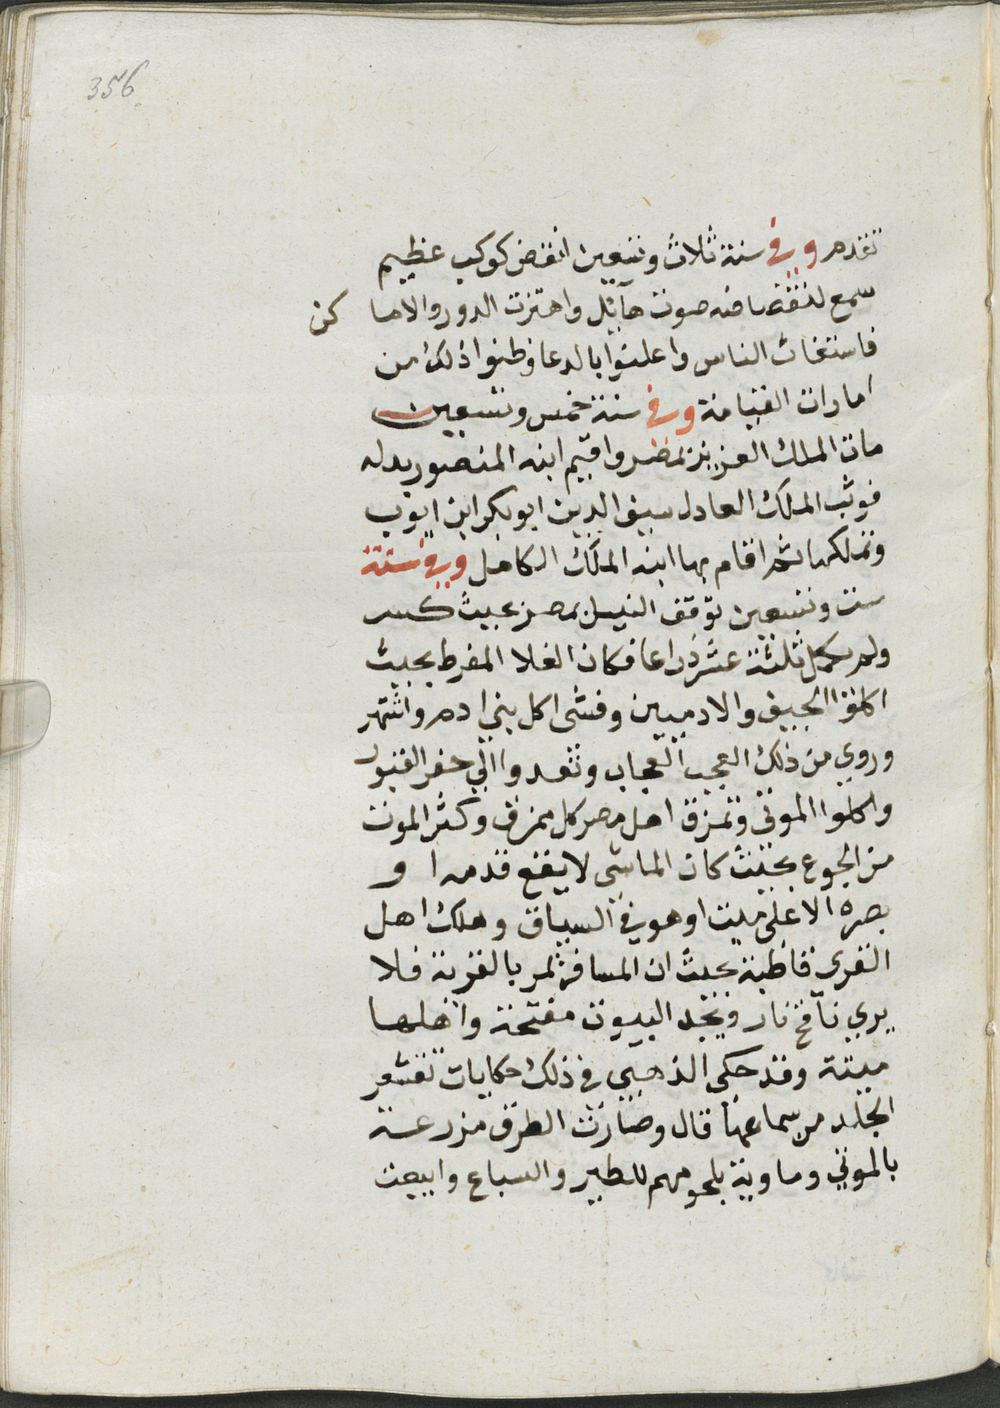 356
تقدم وفي سنة ثلاث وتسعين انقض كوكب عظيم
سمع لانقضاضه صوت هآئل واهتزت الدور والاماكن
فاستغاث الناس واعلنوا بالدعا وظنوا ذلك من
امارات القيامة وفي سنة خمس وتسعين
مات الملك العزيز بمصر واقيم ابنه المنصور بدله
فوثب الملك العادل سيف الدين ابو بكر ابن ايوب
وتملكها ثم اقام بها ابنه الملك الكامل وفي سنة
ست وتسعين توقف النيل بمصر بحيث كسر
ولم يكمل ثلثة عشر ذراعا فكان الغلا المفرط بحيث
اكلوا الجيف والادميين وفشى اكل بني ادم واشتهر
وروي من ذلك العجب العجاب وتعدوا الي حفر القبور
واكلوا الموتي وتمزق اهل مصر كل ممزق وكثر الموت
من الجوع بحيث كان الماشي لا يقع قدمه او
بصره الا علي ميت او هو في السياق وهلك اهل
القري قاطبة بحيث ان المسافر يمر بالقرية فلا
يري نآفخ نار ويجد البيوت مفتحة واهلها
ميتة وقد حكي الذهبي في ذلك حكايات تقشعر
الجلد من سماعها قال وصارت الطرق مزرعة
بالموتي وماوية بلحومهم للطير والسباع وابيعت